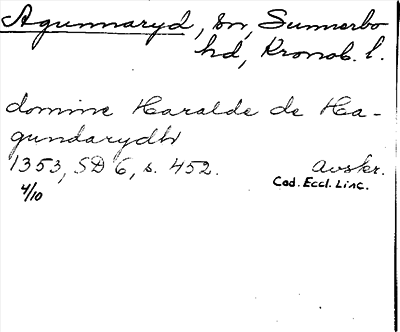 Agunnaryd, sn, Sunnerbo
hd, Kronob. l.
domine Haralde de Ha-
gundarydh
1353, SD 6, s. 452. Avskr.
4/10 Cod. Eccl. Linc.